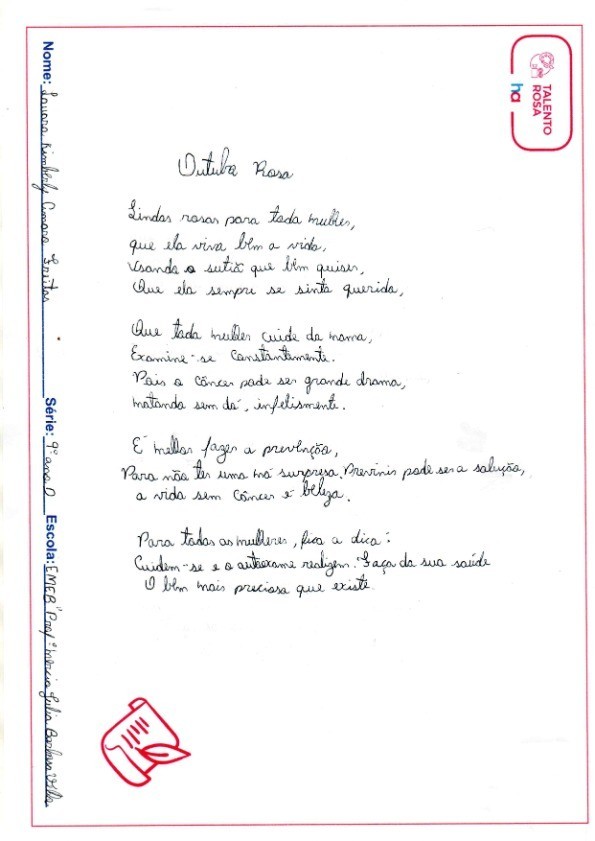 TALENTO
ROSA
ha
Nome: Kimberly Freitas
Série: 9º ano D Escola: EMEB "Profª Márcia Julia Barbosa
Outubro Rosa
Lindas rosas para toda mulher,
que ela viva bem a vida,
Usando o sutiã que bem quiser,
Que ela sempre se sinta querida,
Que toda mulher cuide da mama,
Examine-se constantemente.
Pois o câncer pode ser grande drama,
matando sem dó, infelismente.
É melhor fazer a prevenção,
Para não ter uma má surpresa. Previnir pode ser a solução,
a vida sem câncer é beleza.
Para todas as mulheres, fica a dica:
Cuidem-se e o autoexame realizem. Faça da sua saúde
O bem mais precioso que existe.